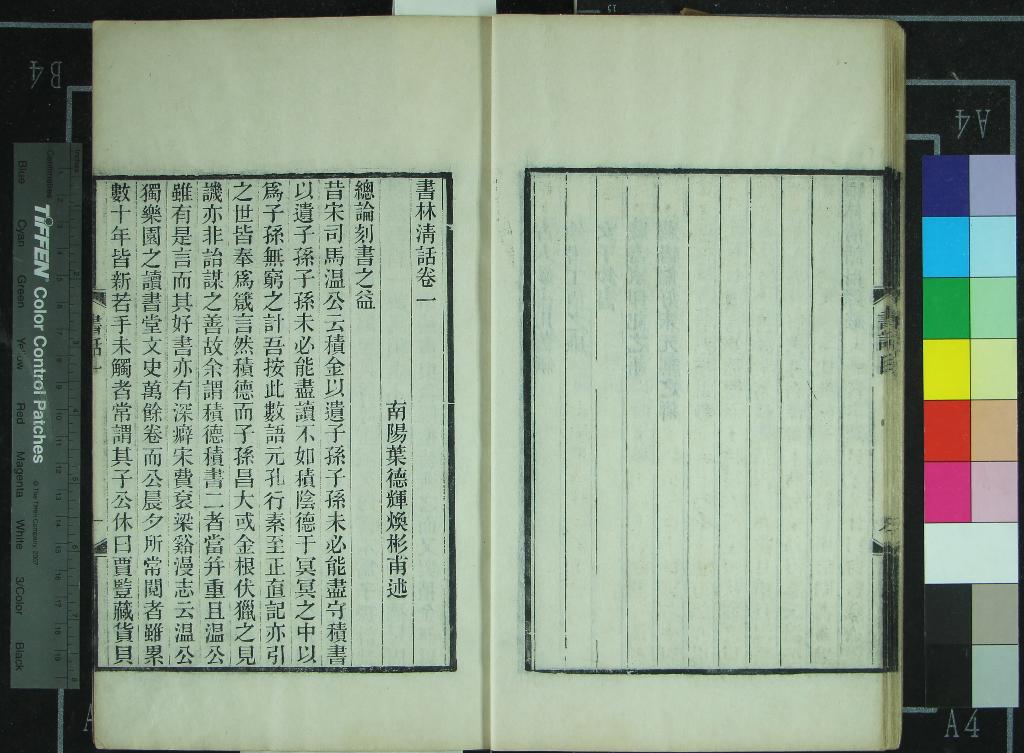 書林淸話卷一
南陽葉德輝煥彬甫述
總論刻書之益
昔宋司馬溫公云積金以遺子孫子孫未必能盡守積書
以遺子孫子孫未必能盡讀不如積陰德于冥冥之中以
爲子孫無窮之計吾按此數語元孔行素至正直記亦引
之世皆奉爲箴言然積德而子孫昌大或金根伏獵之見
譏亦非詒謀之善故余謂積德積書二者當并重且溫公
雖有是言而其好書亦有深癖宋費袞梁谿漫志云溫公
獨樂園之讀書堂文史萬餘卷而公晨夕所常閱者雖累
數十年皆新若手未觸者常謂其子公休曰賈豎藏貨貝
書話一
TIFFEN Color Control Patches
© The Tiffen Company, 2007
Inches
Centimetres
Blue
Cyan
Green
Yellow
Red
Magenta
White
3/Color
Black
B4
A4
A4